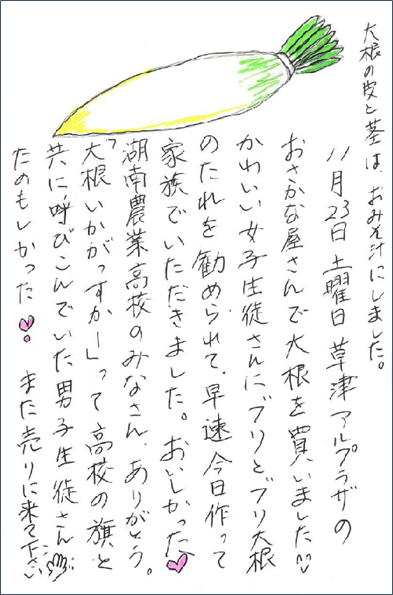 大根の皮と茎は、おみそ汁にしました。
11月23日土曜日草津アルプラザの
おさかな屋さんで大根を買いました
かわいい女子生徒さんにブリとブリ大根
のたれを勧められて、早速今日作って
家族でいただきました。おいしかった
湖南農業高校のみなさん、ありがとう。
「大根いかがっすかー」って高校の旗と
共に呼びこんでいた男子生徒さん
たのもしかった。また売りに来て下さい